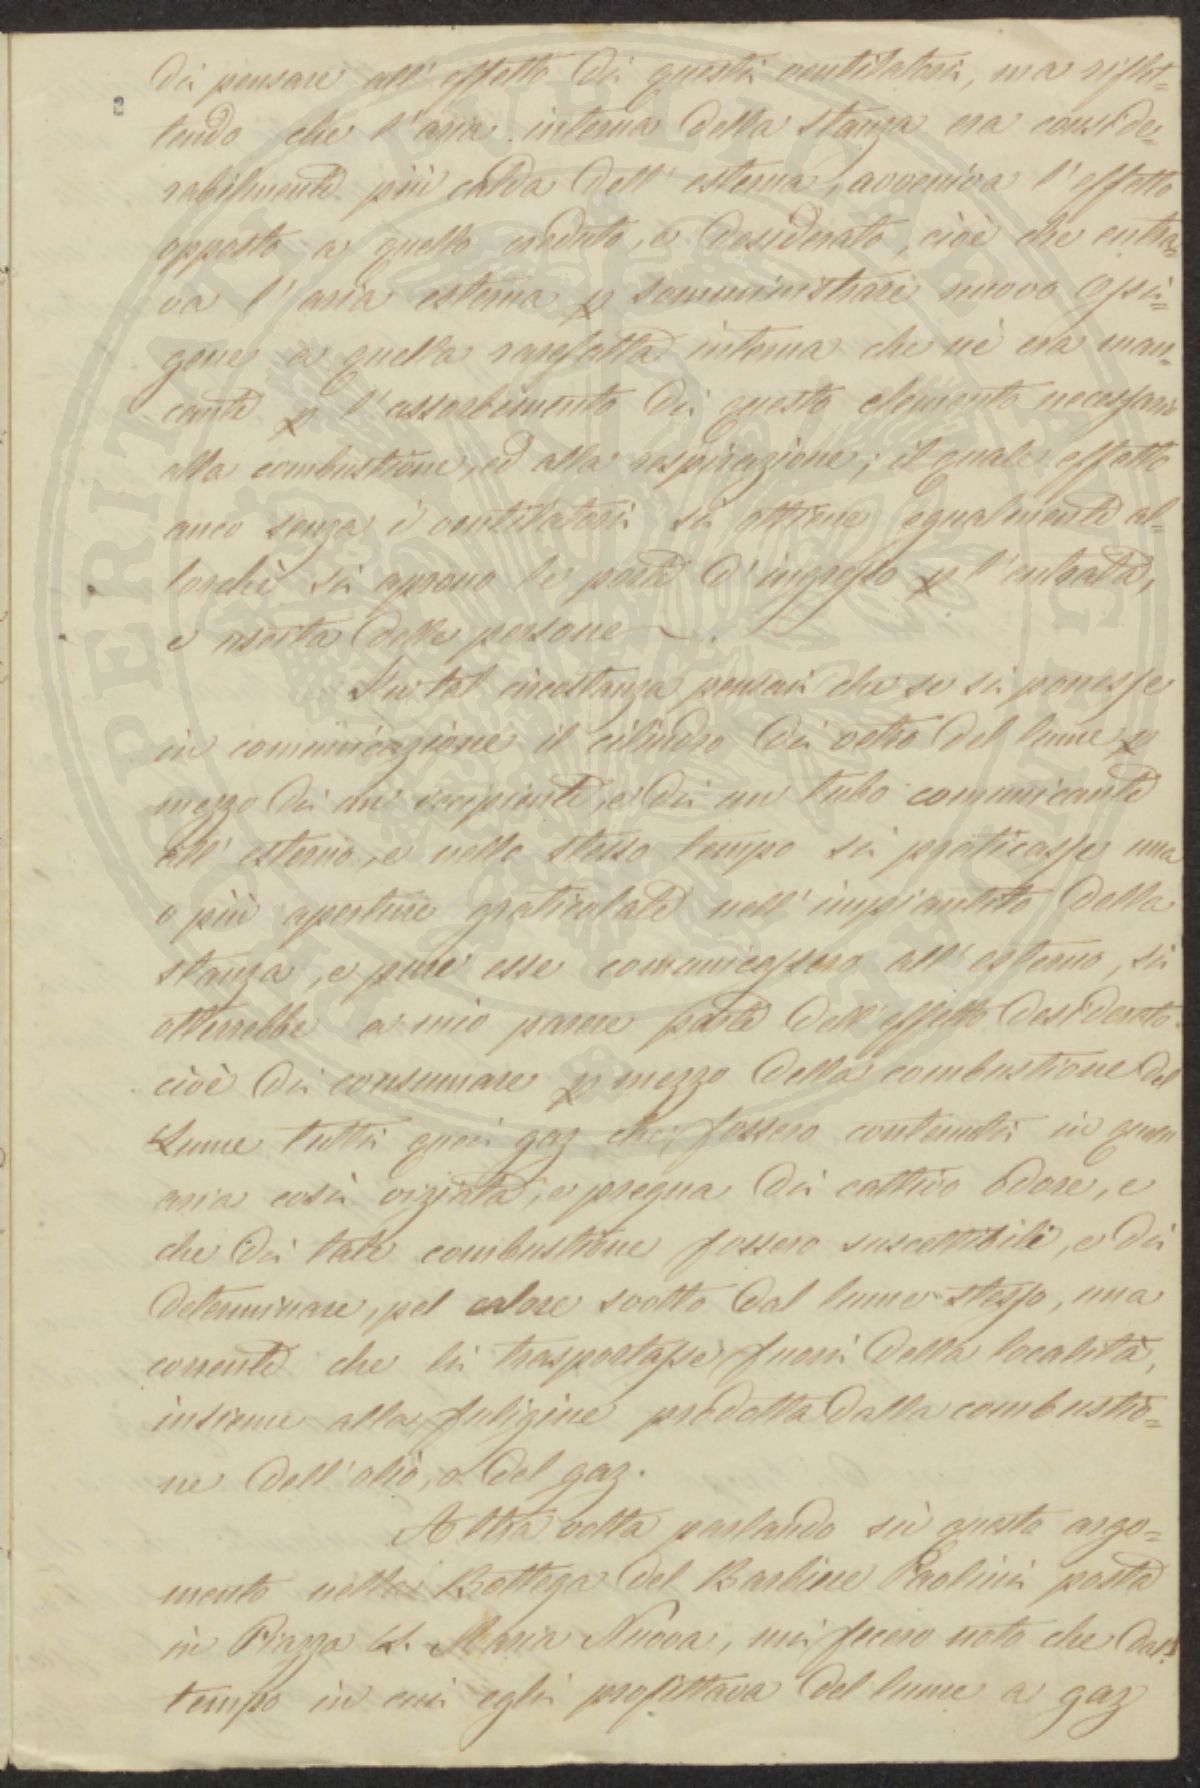 di pensare all'effetto di questi ventilatori, ma riflet=
tendo che l'aria interna della stanza era conside=
rabilmente più calda dell'esterna, avveniva l'effetto
opposto a quello creduto, e desiderato, cioè che entra=
va l'aria esterna p somministrare nuovo Ossi=
gene a quella rarefatta interna che nè era man=
cante p l'assorbimento di questo elemento necessario
alla combustione, ed alla respirazione; il quale effetto
anco senza i ventilatori si ottiene egualmente al=
lorchè si aprono le porte d'ingresso p l'entrata,
e uscita delle persone.
In tal circostanza pensai che se si ponesse
in comunicazione il cilindro di vetro del lume p
mezzo di un recipiente, e di un tubo comunicante
all'esterno, e nello stesso tempo si praticasse una
o più aperture graticolate nell'impiantito della
stanza, e pure esse comunicassero all'esterno, si
otterrebbe a mio parere parte dell'effetto desiderato.
cioè di consumare p mezzo della combustione del
Lume tutti quei gaz che fossero contenuti in quell'
aria così viziata, e pregna di cattivo odore, e
che di tale combustione fossero suscettibili, e di
determinare, pel calore svolto dal lume stesso, una
corrente che li trasportasse fuori della località,
insieme alla fuligine prodotta dalla combustio=
ne dell'olio, o del gaz.
Altra volta parlando sù questo argo=
mento nella Bottega del Barbiere Paolini posta
in Piazza S. Maria Nuova, mi fecero noto che dal
tempo in cui egli profittava del lume a gaz